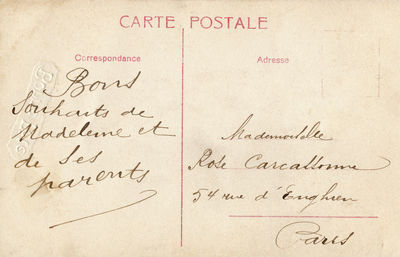 CARTE POSTALE
Correspondance
Bons
Souhaits de
Madeleine et
de Ses
parents
Adresse
Mademoiselle
Rose Carcassonne
54 rue d'Enghien
Paris